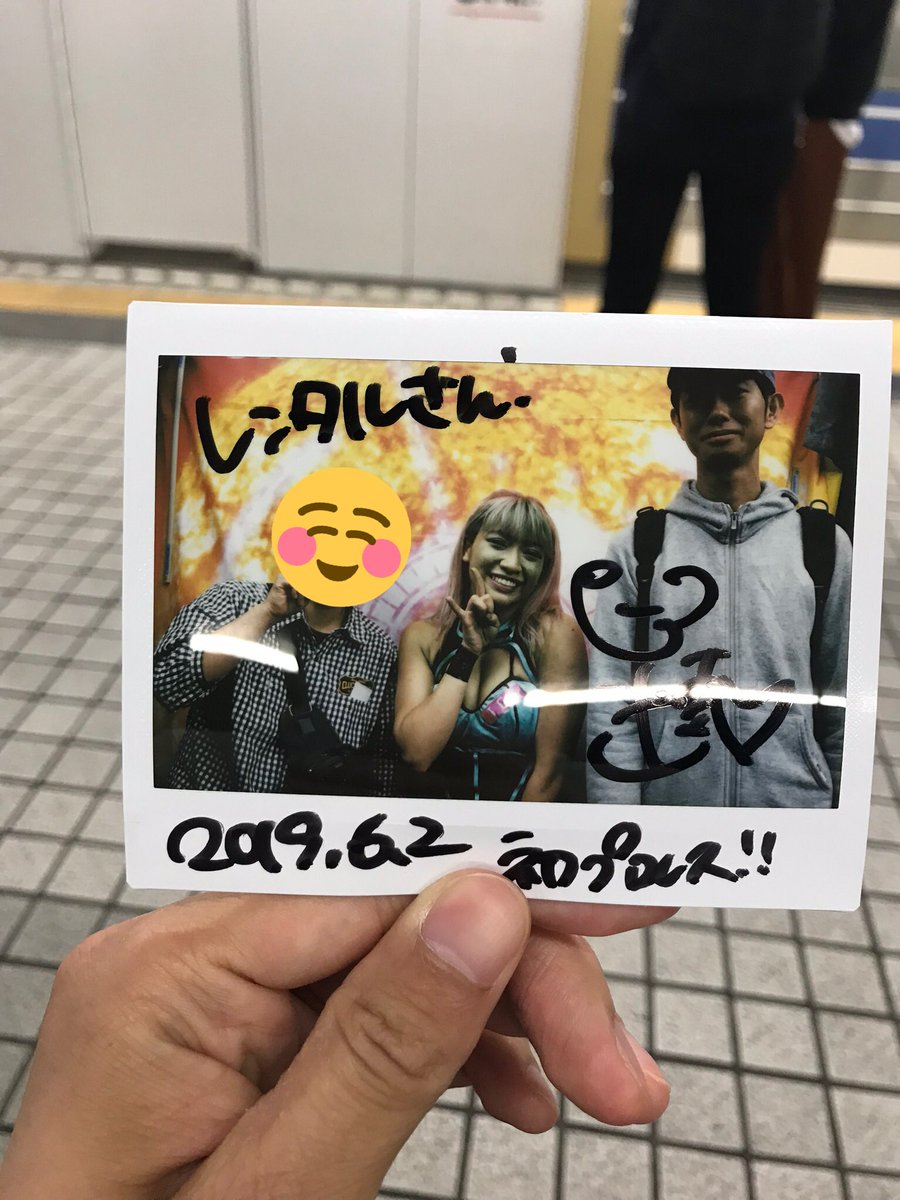 レンタルさん.
2019.6.2 初プロレス!!